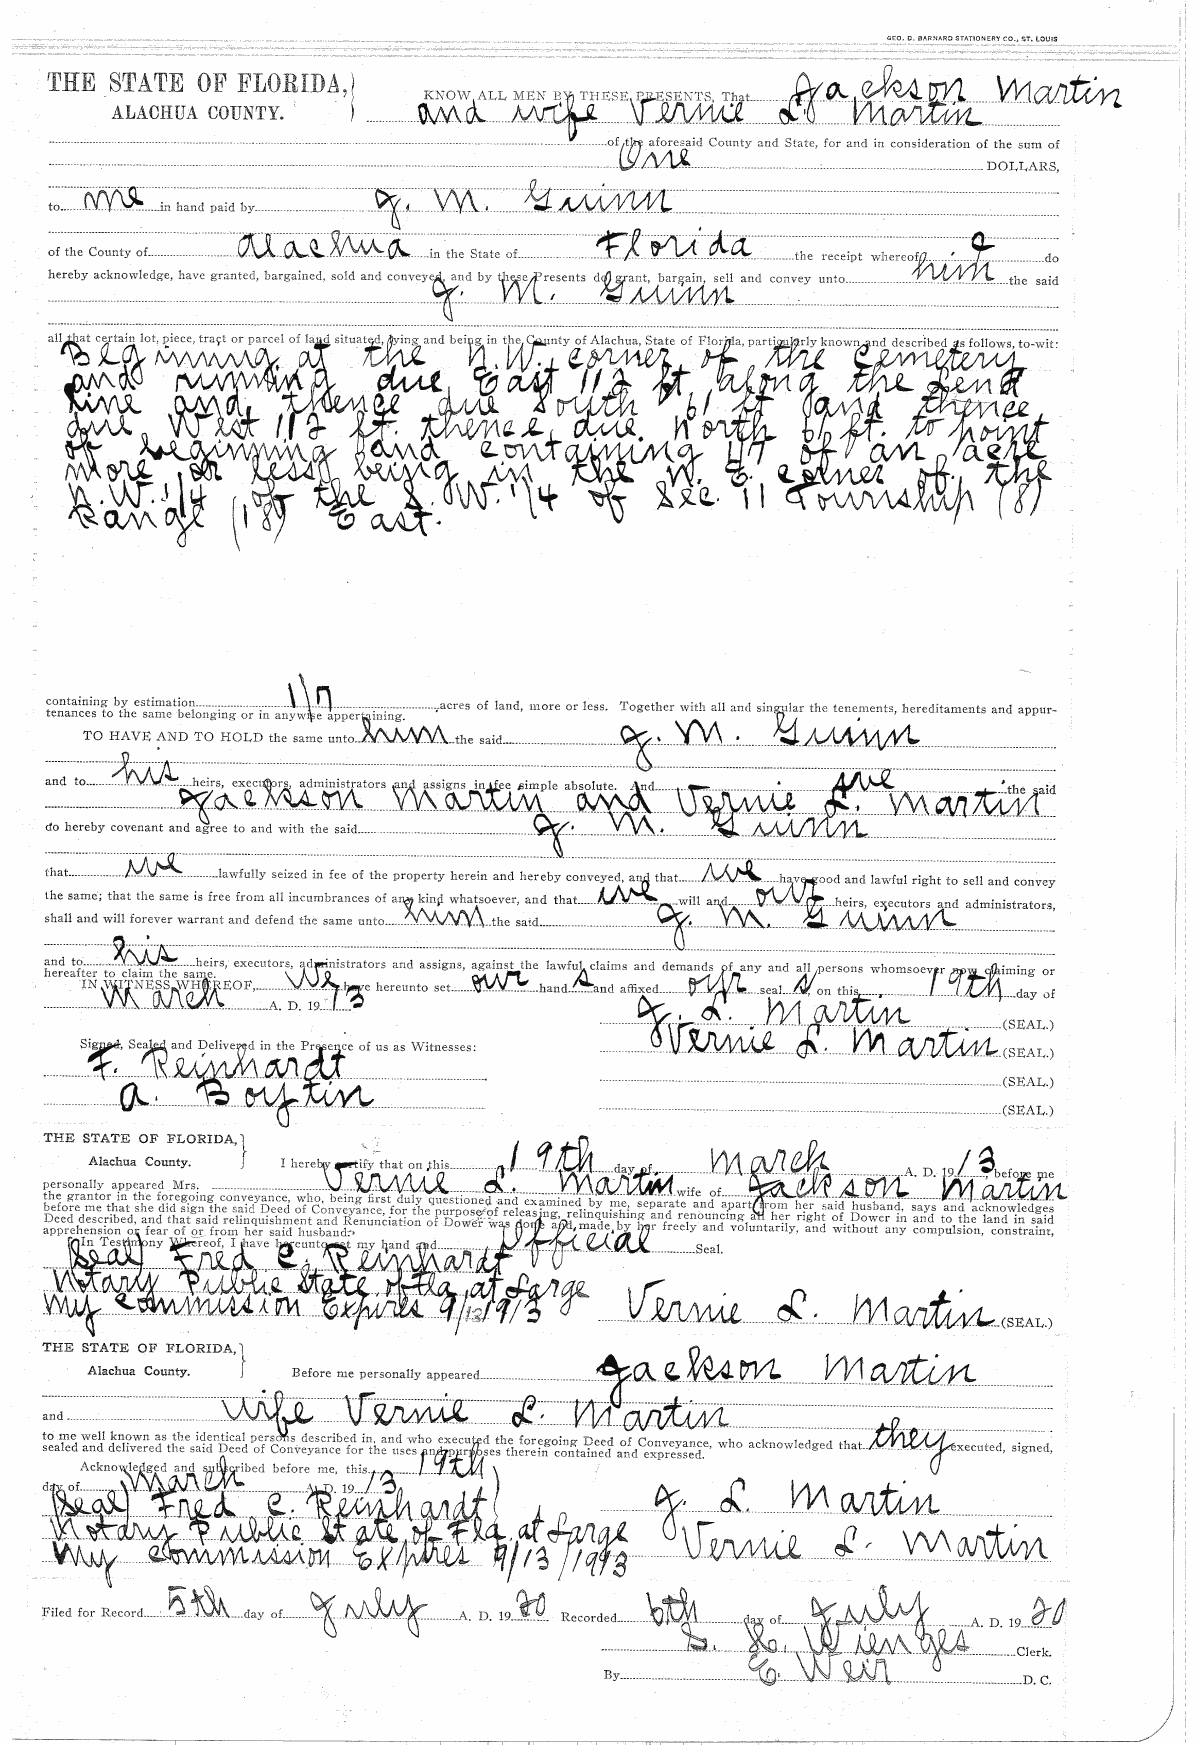 GEO. D. BARNARD STATIONERY CO., ST. LOUIS
THE STATE OF FLORIDA,
ALACHUA COUNTY.
KNOW ALL MEN BY THESE PRESENTS, That Jackson Martin
and wife Vernie L. Martin
of the aforesaid County and State, for and in consideration of the sum of
One DOLLARS,
to me in hand paid by J. M. Guinn
of the County of Alachua in the State of Florida the receipt whereof I do
hereby acknowledge, have granted, bargained, sold and conveyed, and by these Presents do grant, bargain, sell and convey unto him the said
J. M. Guinn
all that certain lot, piece, tract or parcel of land situated, lying and being in the County of Alachua, State of Florida, particularly known and described as follows, to-wit:
Beginning at the N.W. corner of the Cemetery
and running due East 112 ft along the Lend
line and thence due South 61 ft and thence
due West 112 ft. thence due North 61 ft. to point
of beginning and containing 1/7 of an acre
more or less being in the N. E. corner of the
N.W. 1/4 of the S. W. 1/4 of Sec. 11 Township (8)
Range (18) East.
containing by estimation 1/7 acres of land, more or less. Together with all and singular the tenements, hereditaments and appur-
tenances to the same belonging or in anywise appertaining.
TO HAVE AND TO HOLD the same unto him the said J. M. Guinn
and to his heirs, executors, administrators and assigns in fee simple absolute. And we the said
Jackson Martin and Vernie L. Martin
do hereby covenant and agree to and with the said J. M. Guinn
that we lawfully seized in fee of the property herein and hereby conveyed, and that we have good and lawful right to sell and convey
the same; that the same is free from all incumbrances of any kind whatsoever, and that we will and our heirs, executors and administrators,
shall and will forever warrant and defend the same unto him the said J. M. Guinn
and to his heirs, executors, administrators and assigns, against the lawful claims and demands of any and all persons whomsoever now claiming or
hereafter to claim the same.
IN WITNESS WHEREOF, We have hereunto set our hand s and affixed our seal s on this 19th day of
March A. D. 19 13
J. L. Martin (SEAL.)
Signed, Sealed and Delivered in the Presence of us as Witnesses:
Vernie L. Martin (SEAL.)
F. Reinhardt
(SEAL.)
A. Boytin
(SEAL.)
THE STATE OF FLORIDA,
Alachua County.
I hereby certify that on this 19th day of March A. D. 19 13 before me
personally appeared Mrs. Vernie L. Martin wife of Jackson Martin
the grantor in the foregoing conveyance, who, being first duly questioned and examined by me, separate and apart from her said husband, says and acknowledges
before me that she did sign the said Deed of Conveyance, for the purpose of releasing, relinquishing and renouncing all her right of Dower in and to the land in said
Deed described, and that said relinquishment and Renunciation of Dower was done and made by her freely and voluntarily, and without any compulsion, constraint,
apprehension or fear of or from her said husband.
In Testimony Whereof, I have hereunto set my hand and Official Seal.
(Seal) Fred C. Reinhardt
Notary Public State of Fla at Large
My Commission Expires 9/13/1913
Vernie L. Martin (SEAL.)
THE STATE OF FLORIDA,
Alachua County.
Before me personally appeared Jackson Martin
and wife Vernie L. Martin
to me well known as the identical persons described in, and who executed the foregoing Deed of Conveyance, who acknowledged that they executed, signed,
sealed and delivered the said Deed of Conveyance for the uses and purposes therein contained and expressed.
Acknowledged and subscribed before me, this 19th
day of March A. D. 19 13
(Seal) Fred C. Reinhardt
J. L. Martin
Notary Public State of Fla at Large
Vernie L. Martin
My Commission Expires 9/13/1913
Filed for Record 5th day of July A. D. 19 20 Recorded 6th day of July A. D. 19 20
S. H. Wienges Clerk.
By E. Weir D. C.